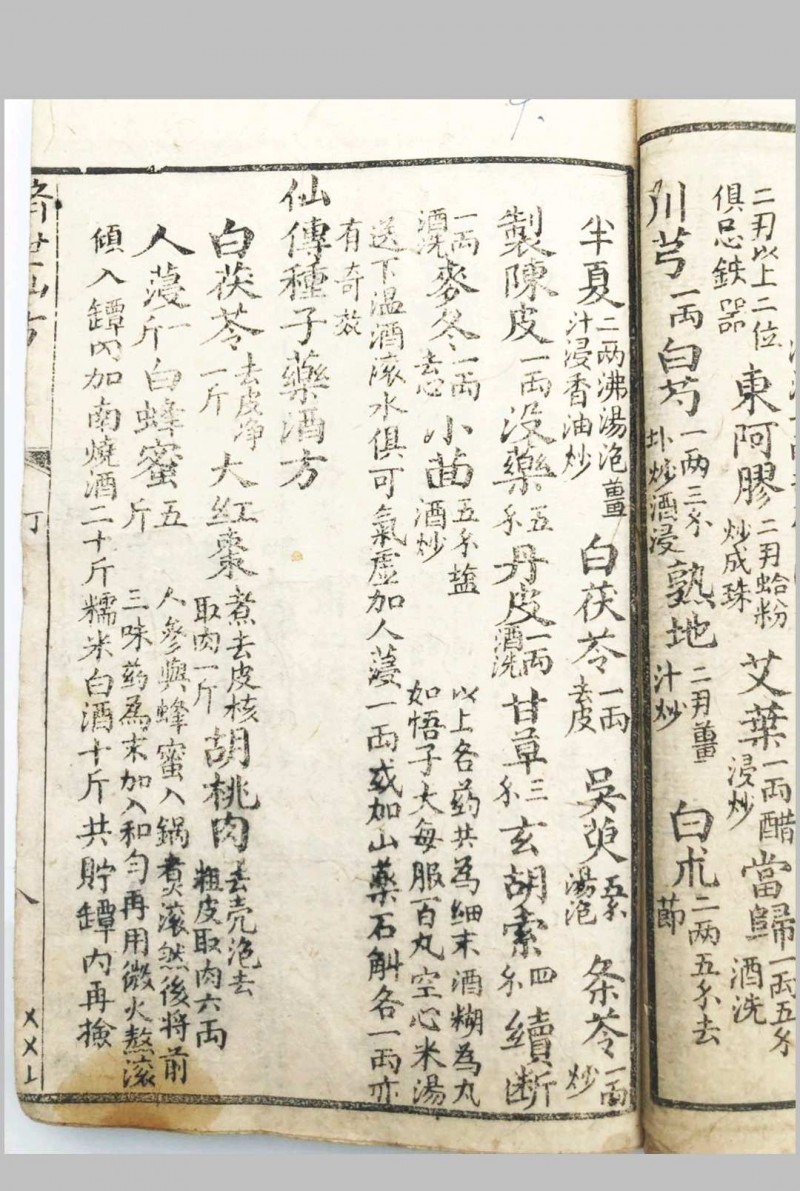 二刄以上二位
俱忌鉄器
東阿膠 二刄蛤粉
炒成珠
艾葉 一両醋
浸炒
當歸 一両五夕
酒洗
川芎 一両 白芍 一両三夕
炒酒浸
熟地 二刄薑
汁炒
白朮 二两五夕去
節
半夏 二两沸湯泡薑
汁浸香油炒
白茯苓 一両
去皮
吳萸 五夕
湯泡
条苓 一両
炒
製陳皮 一両 没藥 五夕 丹皮 一両
酒洗 甘草 三夕 玄胡索 四夕 續断
一両
酒洗 麥冬 一両
去心 小茴 五夕塩
酒炒
以上各药共為細末酒糊為丸
如悟子大每服百丸空心米湯
送下温酒滚水俱可氣虛加人蓡一両或加山藥石斛各一両亦
有奇效
仙傳種子藥酒方
白茯苓 去皮净
一斤
大紅棗 煮去皮核
取肉一斤
胡桃肉 去壳泡去
粗皮取肉六両
人蓡 一斤 白蜂蜜 五斤
人參與蜂蜜入鍋煮滚然後將前
三味药為末加入和匀再用微火熬滚
傾入罈內加南燒酒二十斤糯米白酒十斤共貯罈內再撿
濟世仙方